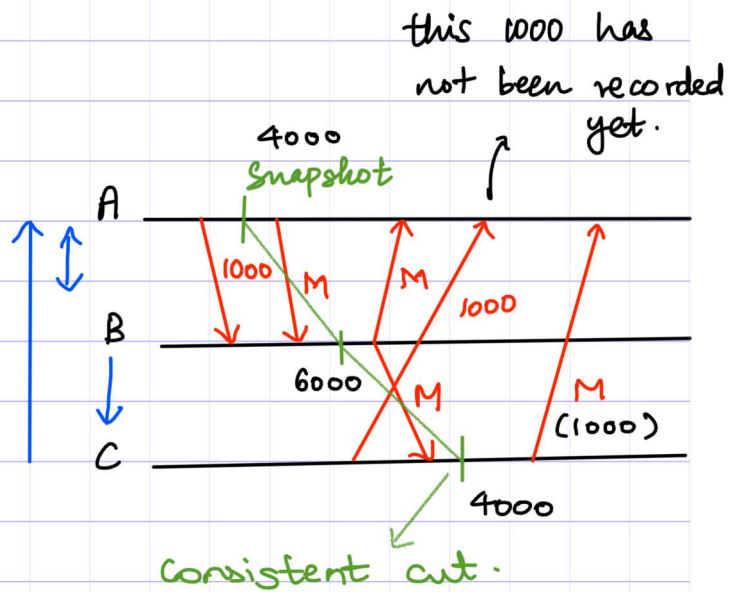 this 1000 has
not been recorded
yet.
4000
Snapshot
A
1000
M
M
1000
B
6000
M
M
(1000)
C
4000
Consistent cut.